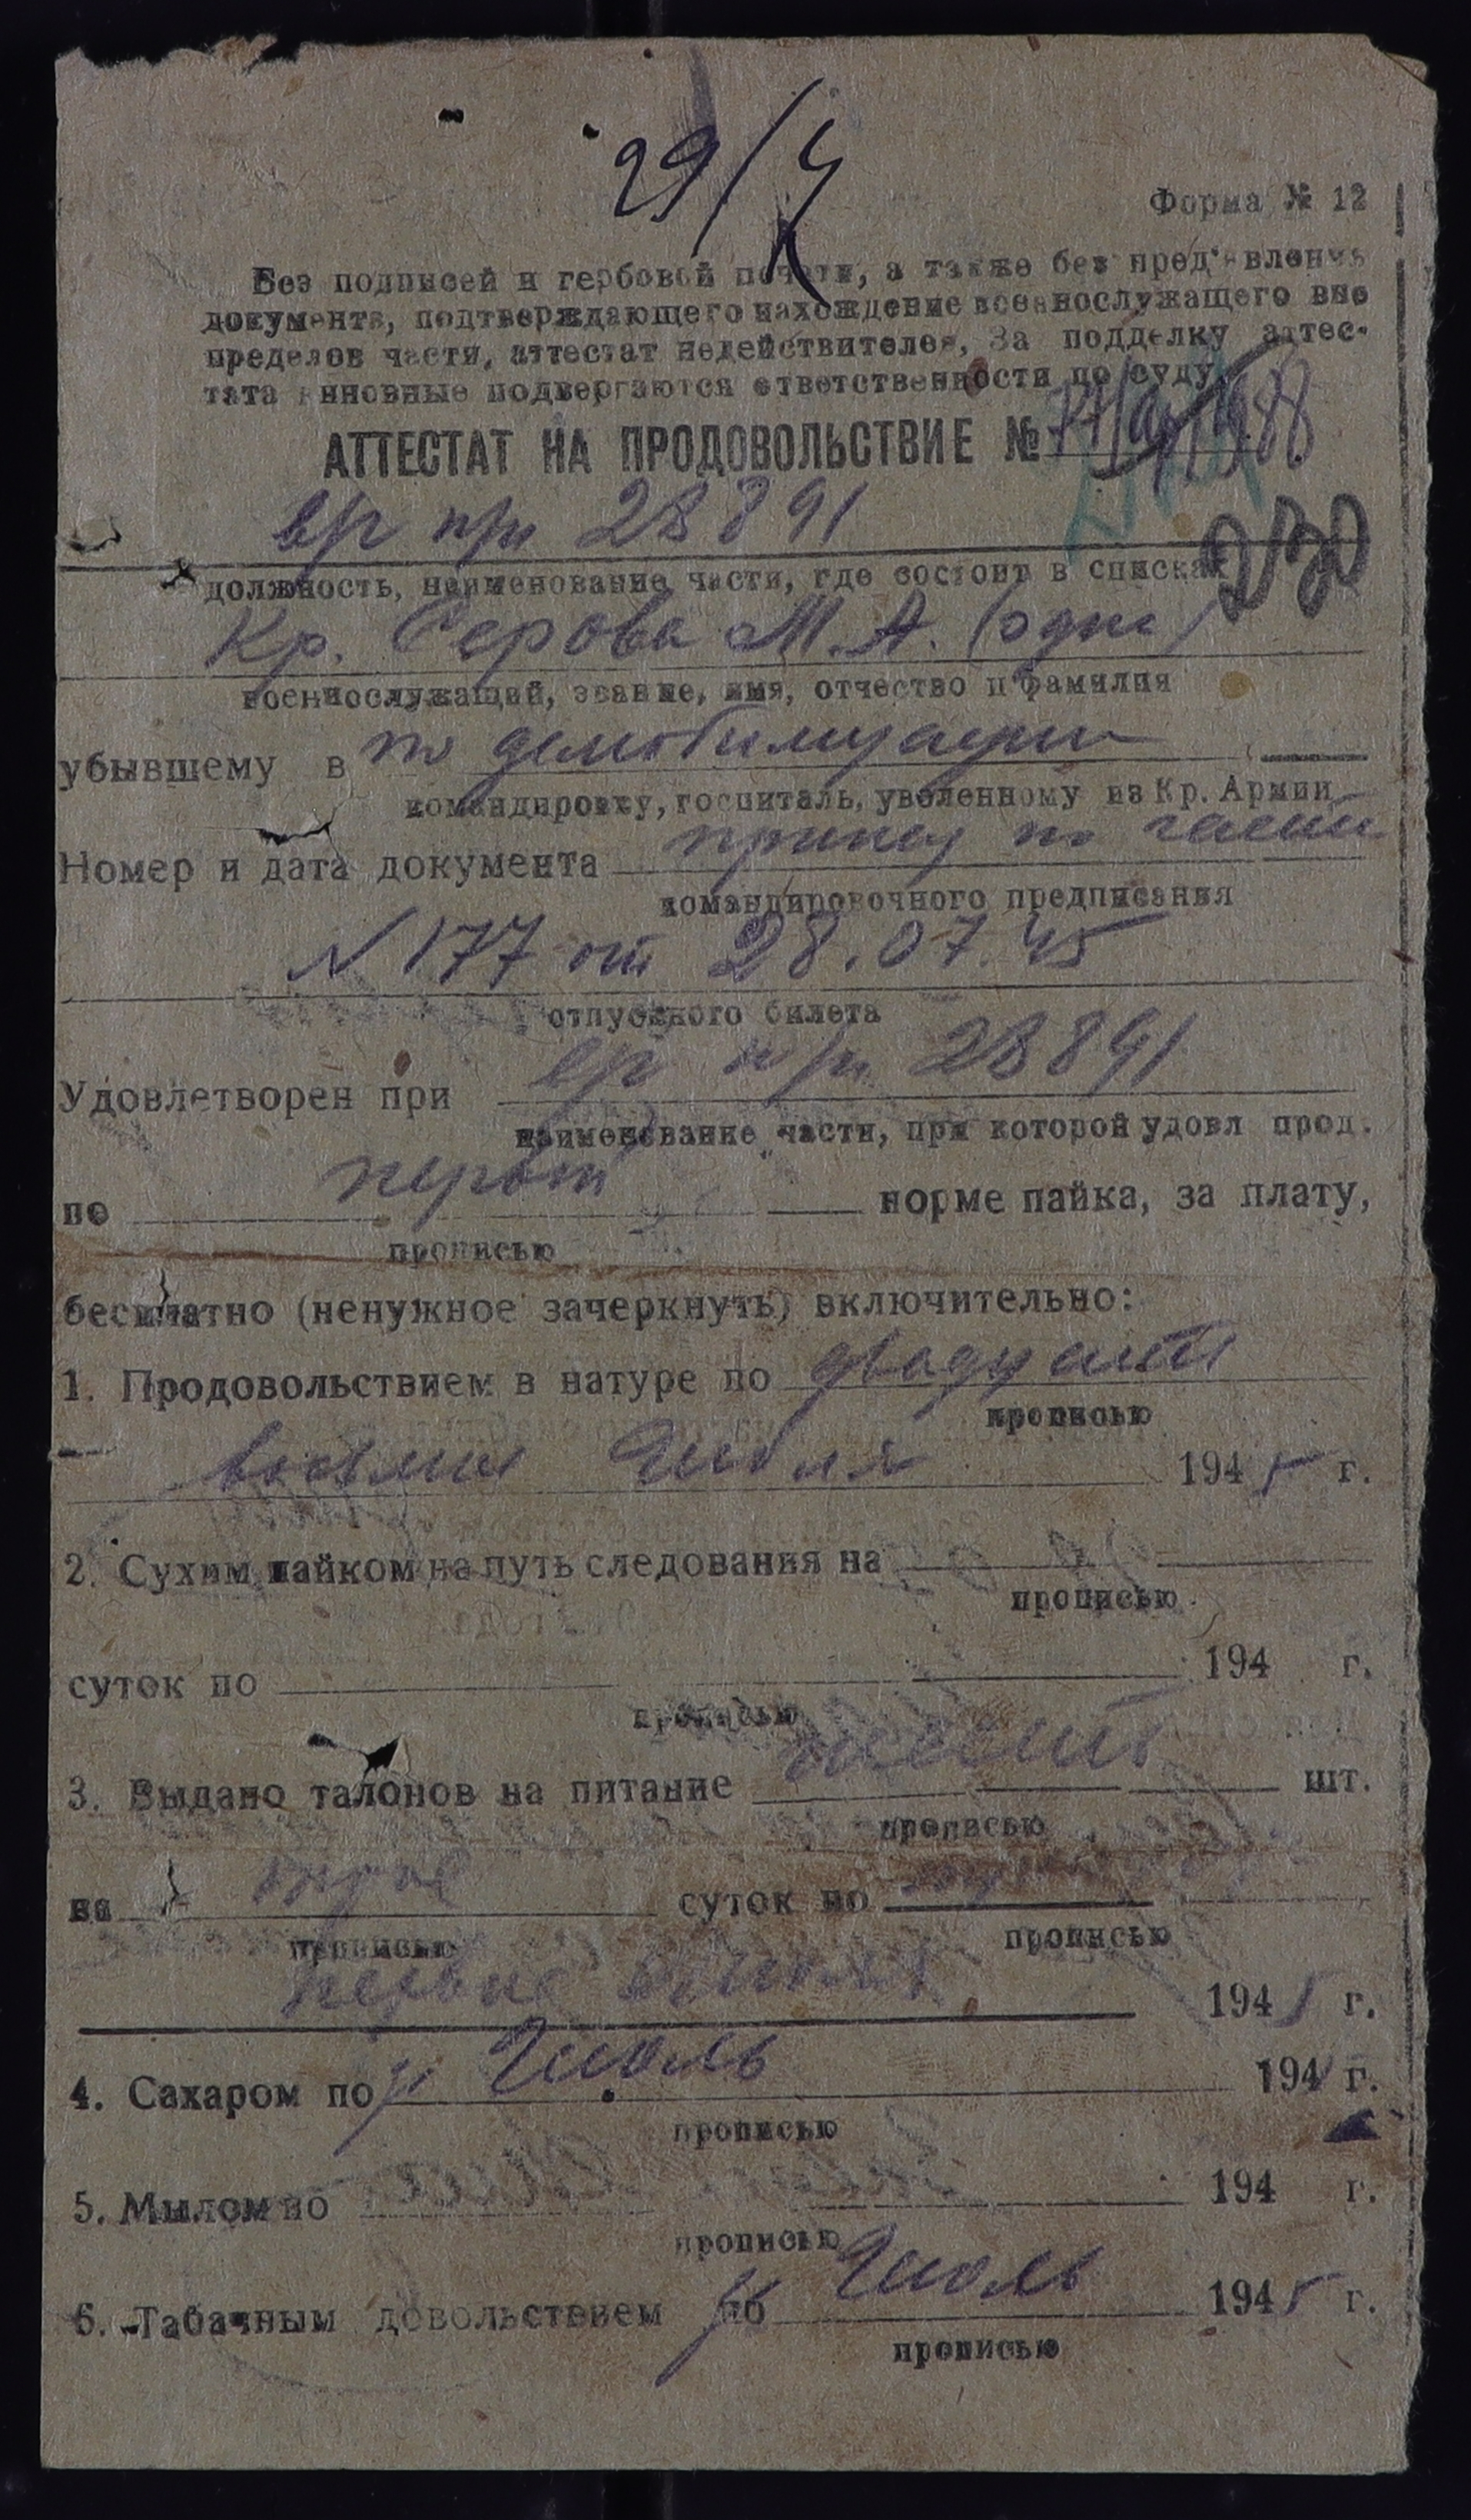 29/
Форма № 12
Без подписей и гербовой печати, а также без пред'явления
документа, подтверждающего нахождение военнослужащего вне
пределов части, аттестат недействителен, За подделку аттес-
тата виновные подвергаются ответственности по суду.
АТТЕСТАТ НА ПРОДОВОЛЬСТВИЕ №
28891
должность, наименование части, где состоит в списках
Кр. Серова М. А. (одна)
военнослужащий, звание, имя, отчество и фамилия
убывшему в по демобилизации
командировку, госпиталь, уволенному из Кр. Армии
Номер и дата документа приказ по части
командировочного предписания
№ 177 от 28.07.45
отпускного билета
Удовлетворен при 28891
наименование части, при которой удовл прод.
по первой норме пайка, за плату,
прописью
бесплатно (ненужное зачеркнуть) включительно:
1. Продовольствием в натуре по двадцать
прописью
восьмое Июля 1945 г.
2. Сухим пайком на путь следования на
прописью
суток по 194 г.
прописью
3. Выдано талонов на питание шт.
прописью
на суток по
прописью прописью
1945 г.
4. Сахаром по Июль 194 г.
прописью
5. Мылом по 194 г.
прописью
6. Табачным довольствием по Июль 1945 г.
прописью